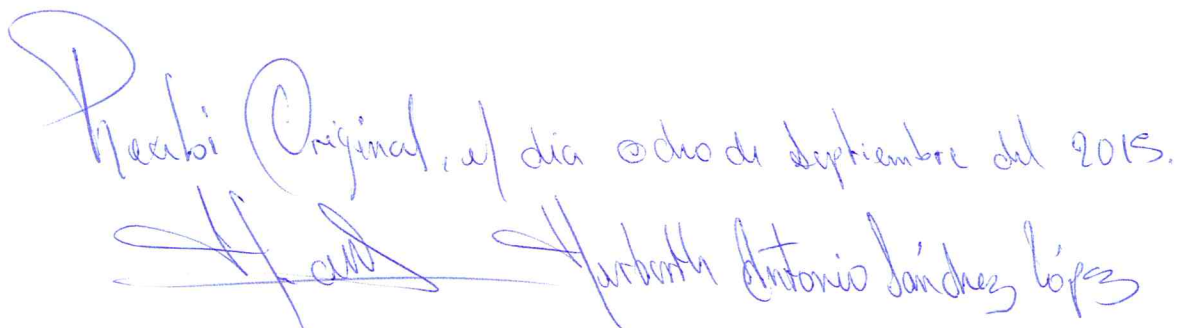 Recibi Original, el dia ocho de septiembre del 2015.
Antonio Sánchez López